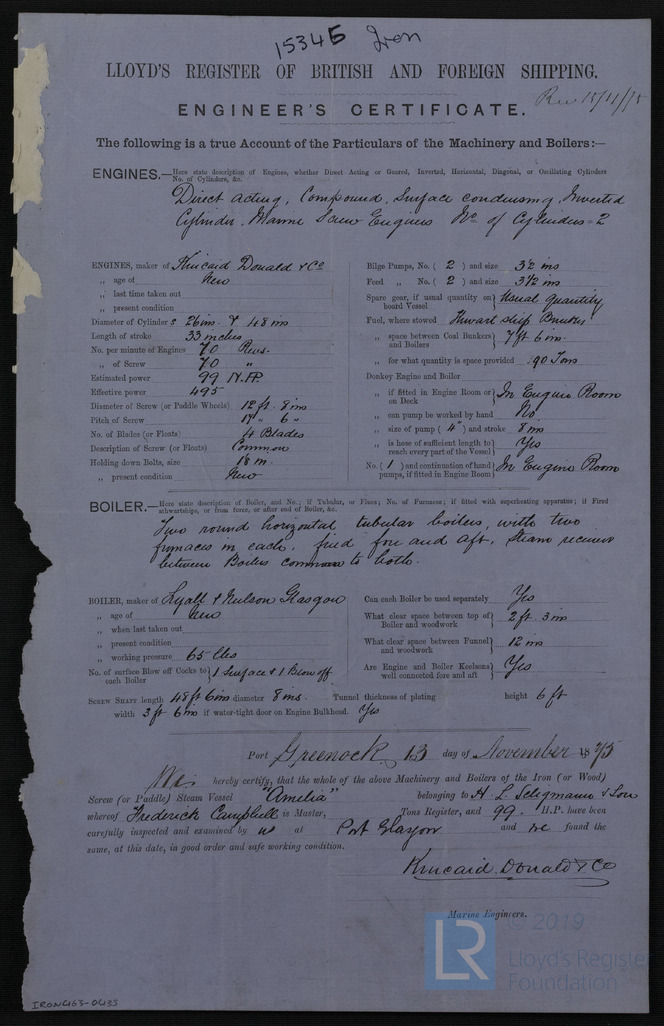 15345 Iron
LLOYD'S REGISTER OF BRITISH AND FOREIGN SHIPPING.
ENGINEER'S CERTIFICATE.
Rec 15/11/75
The following is a true Account of the Particulars of the Machinery and Boilers:—
ENGINES.—Here state description of Engines, whether Direct Acting or Geared, Inverted, Horizontal, Diagonal, or Oscillating Cylinders
No. of Cylinders, &c.
Direct acting, Compound, Surface condensing, Inverted
Cylinder, Marine Screw Engines No of Cylinders=2
ENGINES, maker of Kincaid Donald & Co
„ age of New
„ last time taken out
„ present condition
Diameter of Cylinders 26 in. & 48 ins
Length of stroke 33 inches
No. per minute of Engines 70 Revs.
„ of Screw 70 "
Estimated power 99 N.H.P.
Effective power 495
Diameter of Screw (or Paddle Wheels) 12 ft. 8 ins
Pitch of Screw 17 " 6 "
No. of Blades (or Floats) 4 Blades
Description of Screw (or Floats) Common
Holding down Bolts, size
„ present condition New
Bilge Pumps, No. ( 2 ) and size 3½ ins
Feed „ No. ( 2 ) and size 3½ ins
Spare gear, if usual quantity on board Vessel } Usual quantity
Fuel, where stowed Thwart ship Bunker
„ space between Coal Bunkers and Boilers } 7 ft 6 ins.
„ for what quantity is space provided 90 Tons
Donkey Engine and Boiler
„ if fitted in Engine Room or on Deck } In Engine Room
„ can pump be worked by hand No
„ size of pump ( 4" ) and stroke 8 ins
„ is hose of sufficient length to reach every part of the Vessel } Yes
No. ( 1 ) and continuation of hand pumps, if fitted in Engine Room } In Engine Room
BOILER.—Here state description of Boiler, and No.; if Tubular, or Flues; No. of Furnaces; if fitted with superheating apparatus; if Fired
athwartships, or from force, or after end of Boiler, &c.
Two round horizontal tubular boilers, with two
furnaces in each, fired fore and aft, Steam receiver
between Boilers common to both.
BOILER, maker of Lyall & Nelson Glasgow
„ age of New
„ when last taken out
„ present condition
„ working pressure 65 lbs
No. of surface Blow off Cocks to each Boiler } 1 Surface & 1 Blow off
Can each Boiler be used separately Yes
What clear space between top of Boiler and woodwork } 2 ft 3 ins
What clear space between Funnel and woodwork } 12 ins
Are Engine and Boiler Keelsons well connected fore and aft } Yes
SCREW SHAFT length 48 ft 6 ins diameter 8 ins. Tunnel thickness of plating height 6 ft
width 3 ft 6 ins if water-tight door on Engine Bulkhead. Yes
Port Greenock 13 day of November 1875
We hereby certify, that the whole of the above Machinery and Boilers of the Iron (or Wood)
Screw (or Paddle) Steam Vessel "Amelia" belonging to H. L. Seligmann & Son
whereof Frederick Campbell is Master, Tons Register, and 99. H.P. have been
carefully inspected and examined by us at Port Glasgow and we found the
same, at this date, in good order and safe working condition.
Kincaid, Donald & Co
Marine Engineers.
LR
2019
Lloyd's Register
Foundation
IRON463-0433